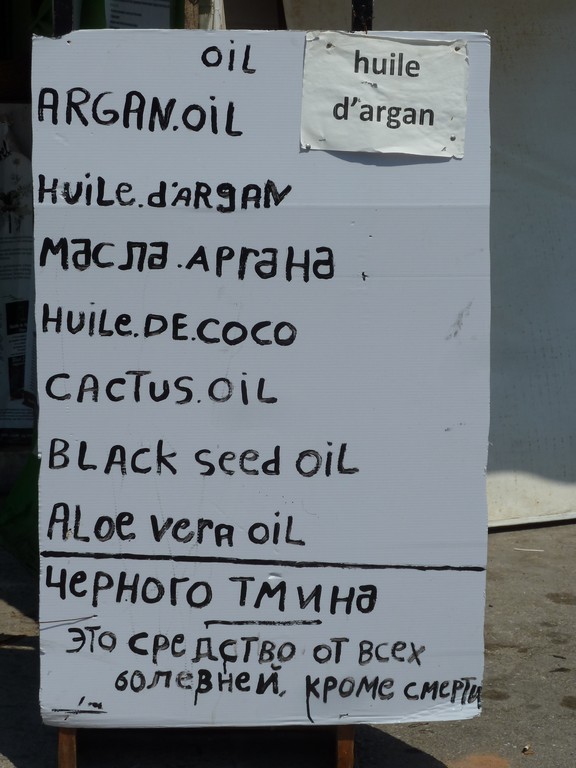 oiL
huile
d'argan
ARGAN.OiL
HUiLe.d'ARgAN
Масла.Аргана
HUiLe.DE.COCO
CACTUS.OiL
BLACK seed OiL
ALoe verA oiL
Черного ТМИНа
Это средство от всех
болевней, кроме смерти